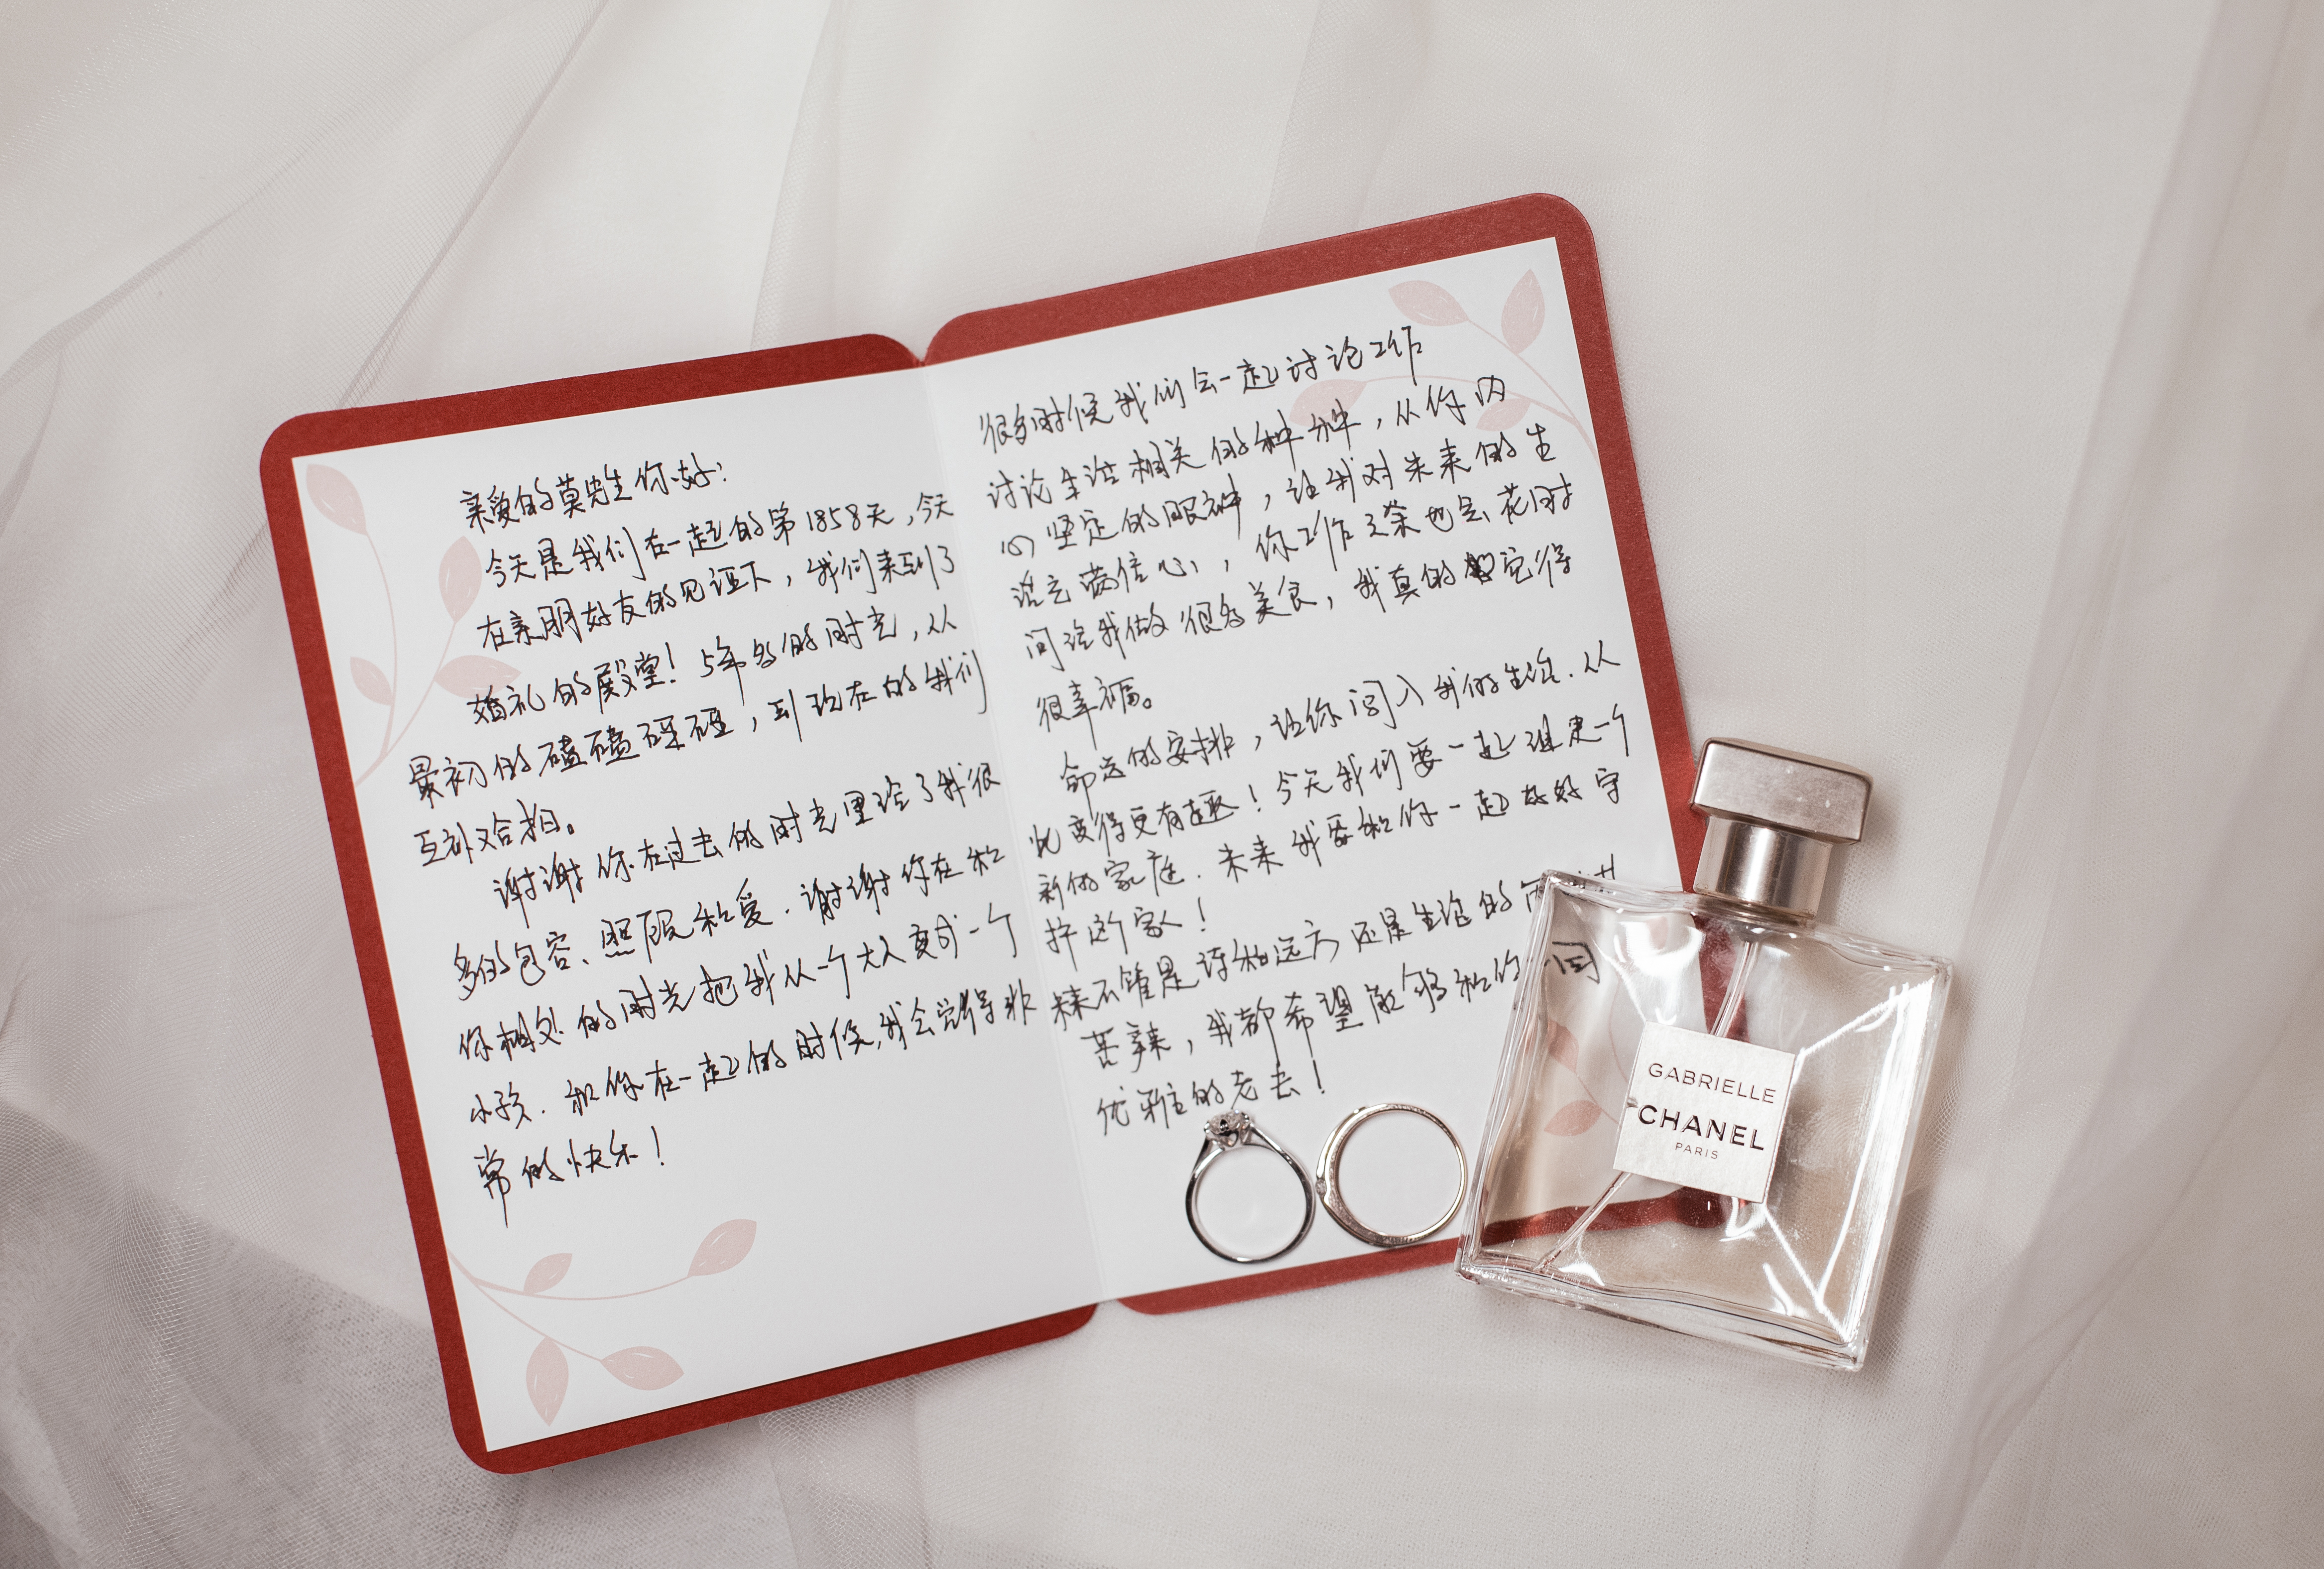 亲爱的莫先生你好：
今天是我们在一起的第1858天，今天
在亲朋好友的见证下，我们来到了
婚礼的殿堂！5年多的时光，从
最初的磕磕碰碰，到现在的我们
互补又合拍。
谢谢你在过去的时光里给了我很
多的包容、照顾和爱．谢谢你在和
你相处的时光把我从一个大人变成一个
小孩．和你在一起的时候，我会觉得非
常的快乐！
很多时候我们会一起讨论工作
讨论生活相关的种种，从你内
心坚定的眼神，让我对未来的生
活充满信心，你工作之余也会花时
间给我做很多美食，我真的觉得
很幸福。
命运的安排，让你闯入我的生活．从
此变得更有趣！今天我们要一起组建一个
新的家庭．未来我要和你一起好好守
护这个家！
不管是诗和远方还是生活的
苦辣，我都希望能够和你一同
优雅的老去！
GABRIELLE
CHANEL
PARIS